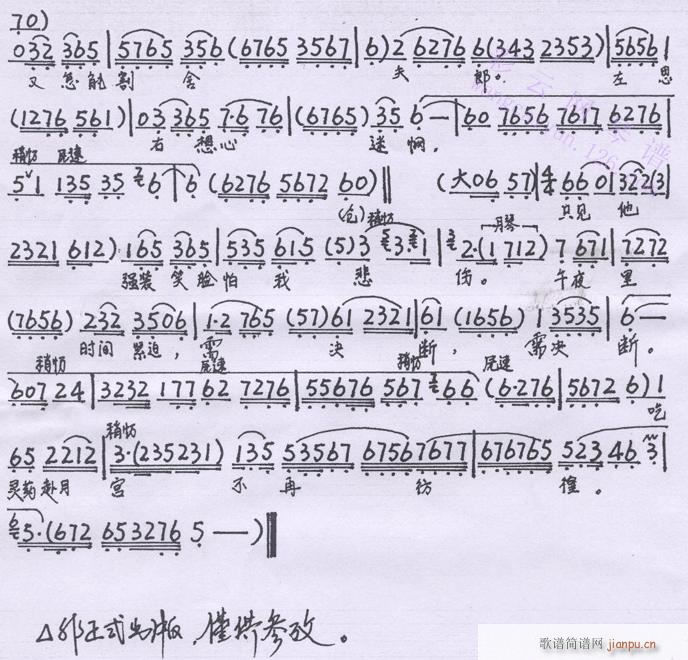 70)
032 365 | 5765 356 (6765 3567 | 6) 2 6276 6 (343 2353) | 5656 1
又 怎能 割 舍 夫 郎。 左 思
(1276 561) | 03 365 7·6 76 | (6765) 35 6 — | 60 7656 7617 6276 |
右 想 心 迷 惘,
稍慢 尼速
5 1 135 35 6 6 (6276 5672 60) || (大06 57) | 6601 322(3 |
(仓) 稍慢 只见 他
2321 612) 165 365 | 535 615 (5) 3 3·1 | 2·(1 712) 7 671 | 7272
月琴
强装 笑脸 怕 我 悲 伤。 午夜 里
(7656) 232 3506 | 1·2 765 (57) 61 2321 | 61 (1656) 1 3535 | 6 —
时间 紧迫, 需 决 断, 需决 断。
稍慢 尼速 稍慢 尼速
607 24 | 3232 177 62 7276 | 55676 567 66 (6·276 | 5672 6) 1
吃
稍慢
65 2212 | 3·(235231) 135 53567 67567677 | 676765 523 46 3 |
灵药 赴月 宫 不 再 彷 徨。
5·(672 653276 5 — — )
△非正式出版,仅供参考。
歌谱简谱网
jianpu.cn